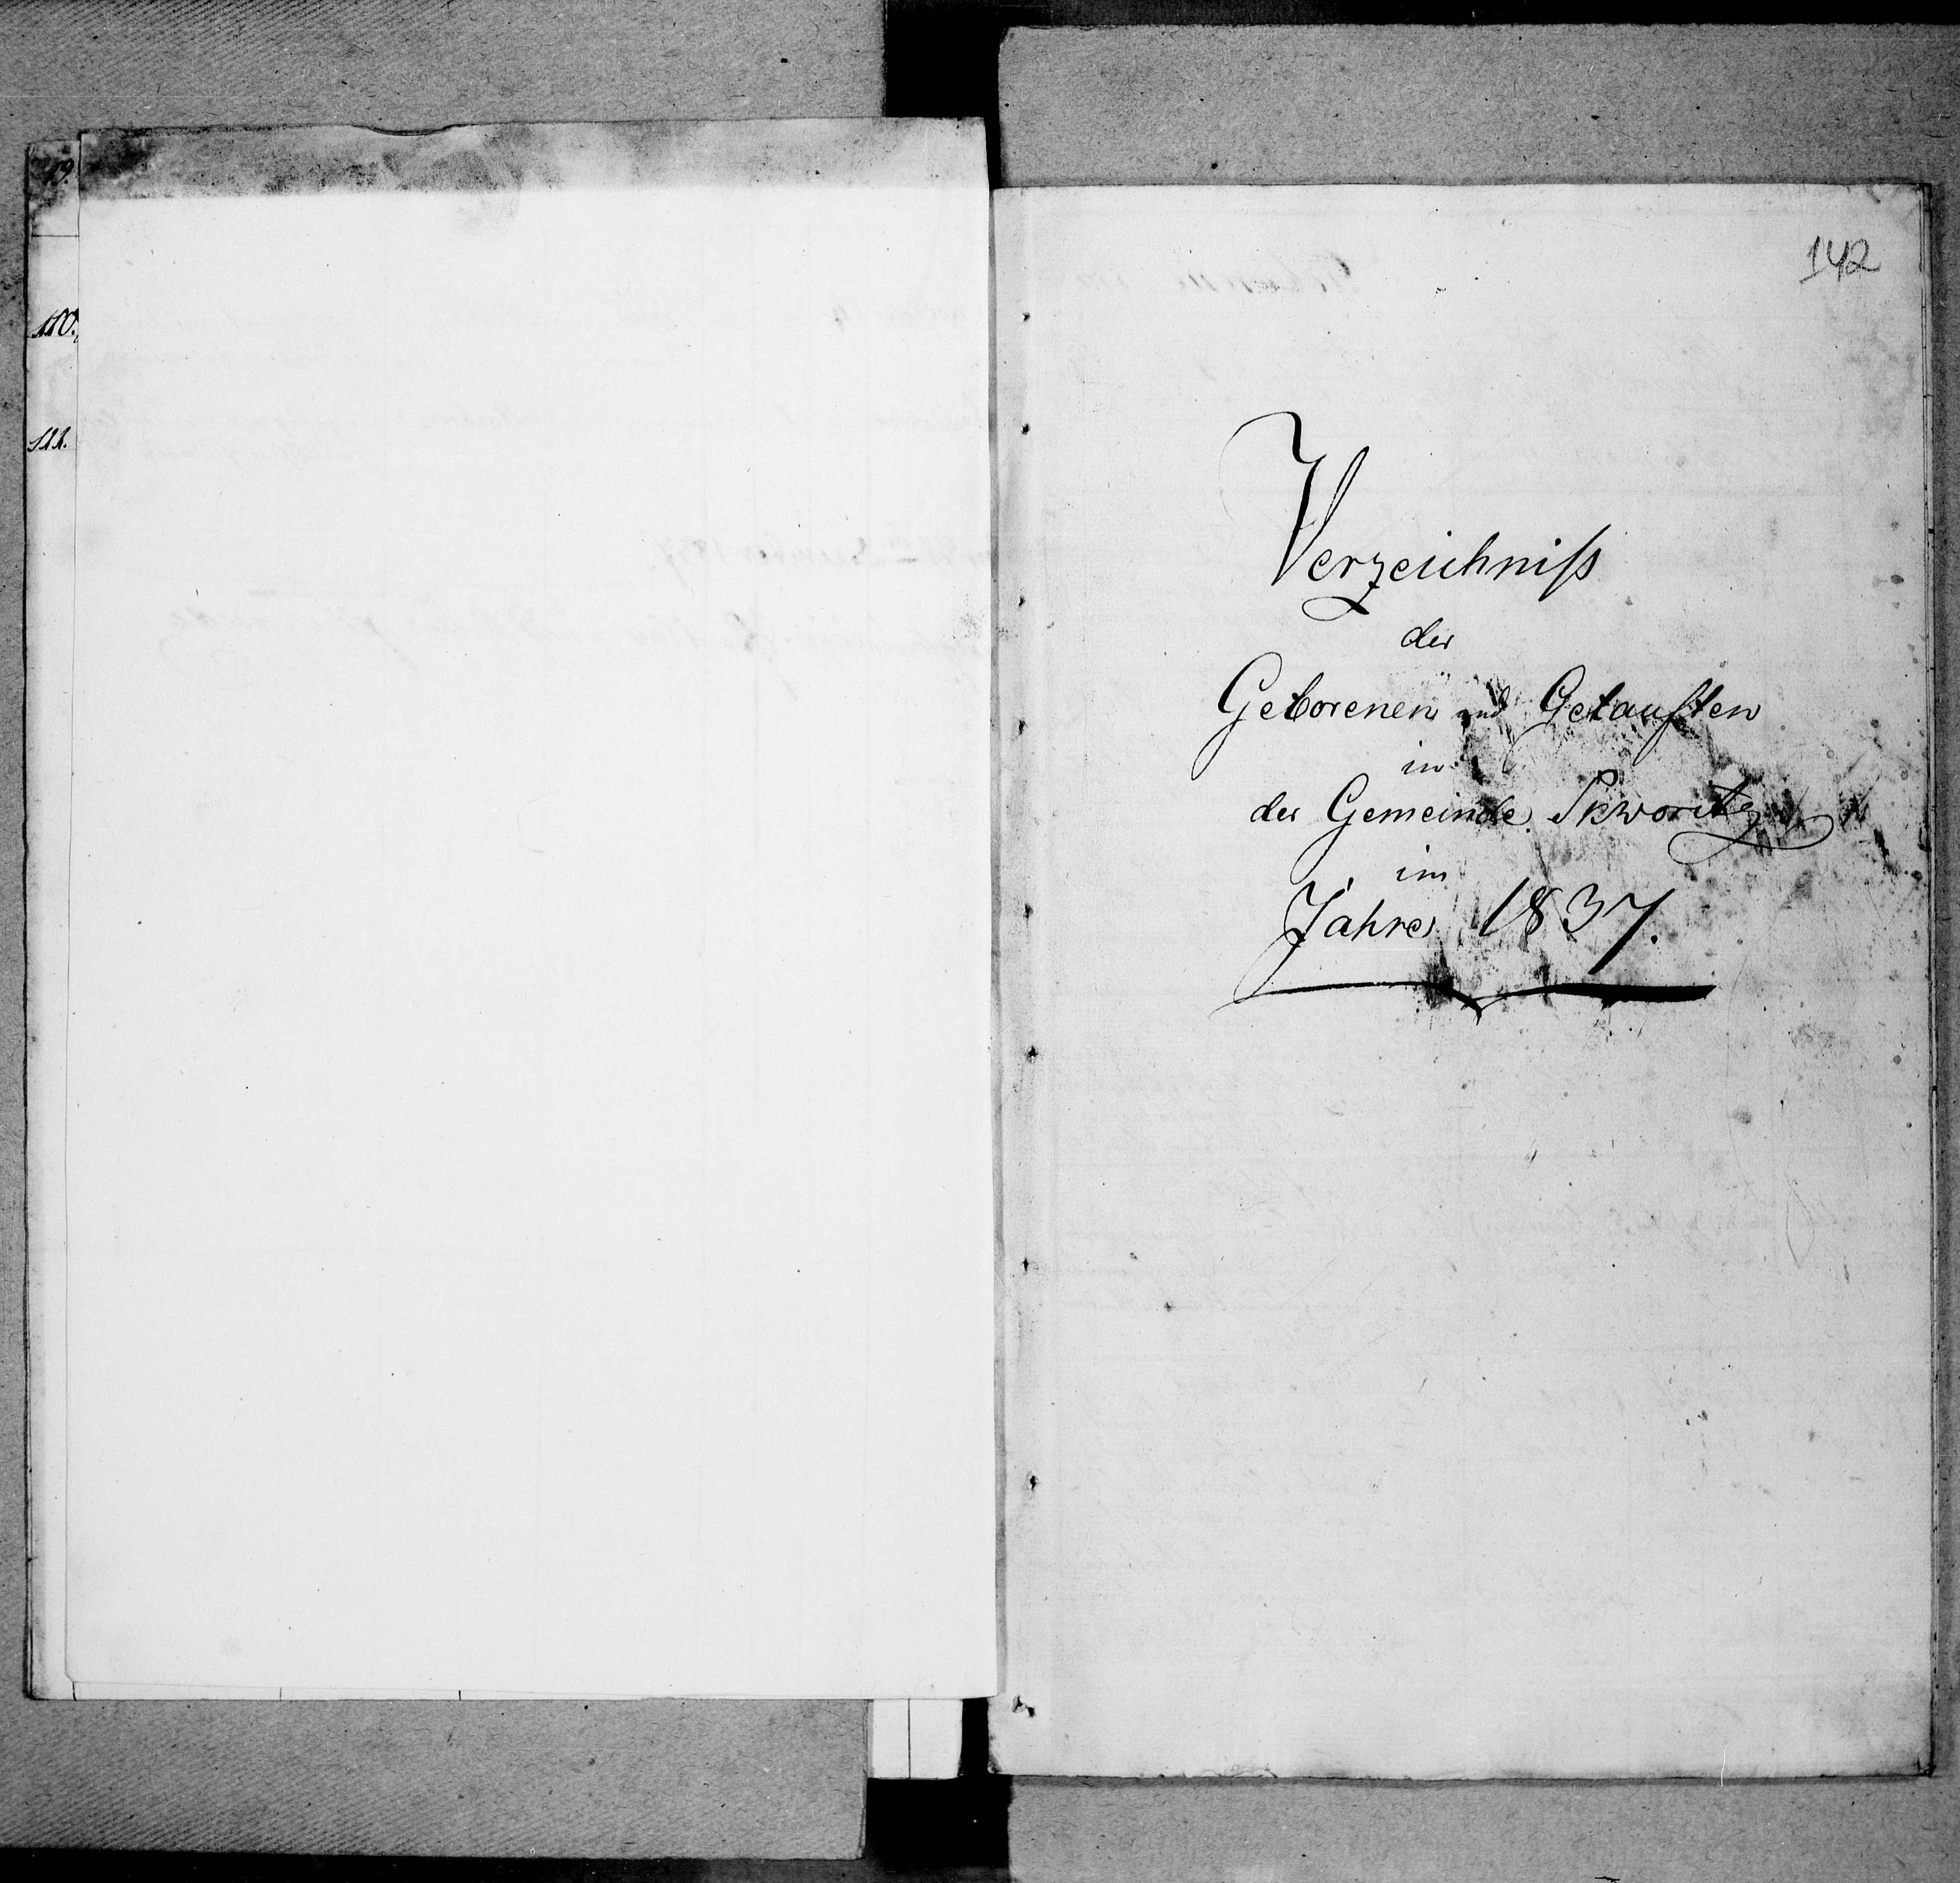 110.
111.
142
Verzeichniß
der
Geborenen und Getauften
in
der Gemeinde Skworitz
im
Jahre 1837.